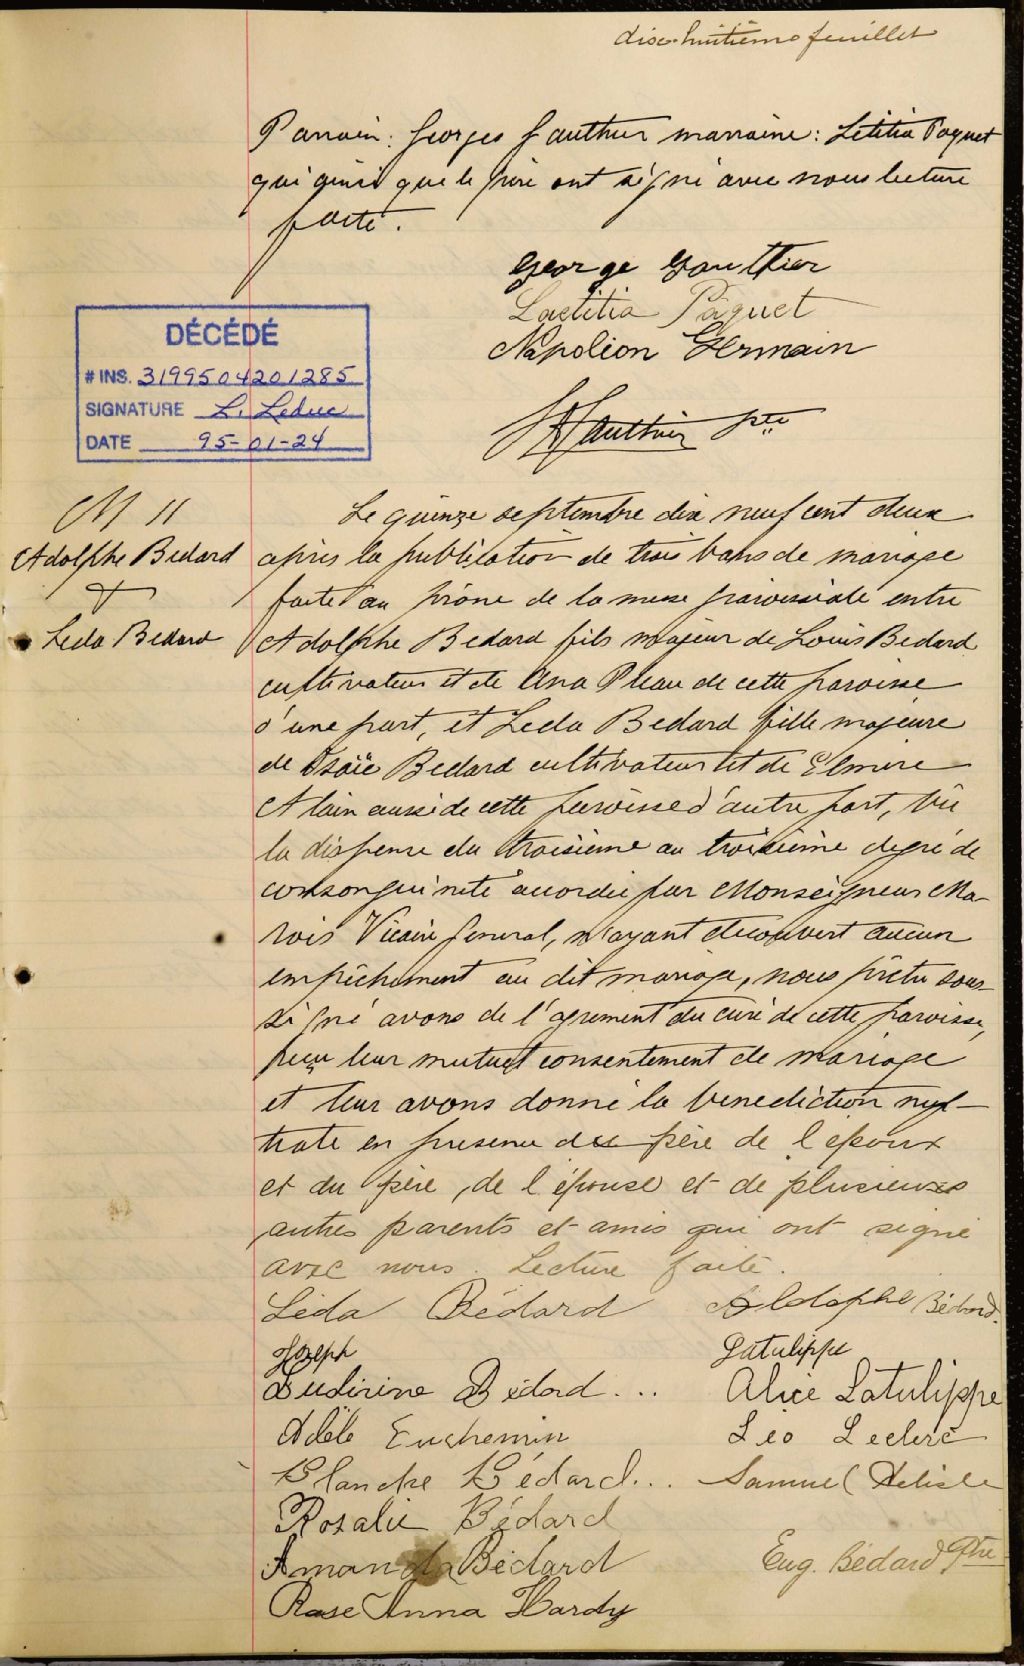 dix-huitième feuillet
Parrain: Georges Gauthier marraine: Letitia Paquet
qui ainsi que le père ont signé avec nous lecture
faite.
George Gauthier
Laetitia Paquet
Napoléon Germain
Gauthier Ptre
DÉCÉDÉ
# INS. 3199504201285
SIGNATURE L. Leduc
DATE 95-01-24
M 11
Adolphe Bedard
+
Leda Bedard
Le quinze septembre dix neuf cent deux
après la publication de trois bans de mariage
faite au prône de la messe paroissiale entre
Adolphe Bedard fils majeur de Louis Bedard
cultivateur et de Ana Pleau de cette paroisse
d'une part, et Leda Bedard fille majeure
de Isaïe Bedard cultivateur et de Elmire
Alain aussi de cette paroisse d'autre part, vu
la dispense du troisième au troisième degré de
consanguinité accordée par Monseigneur Ma-
rois Vicaire General, n'ayant decouvert aucun
empêchement au dit mariage, nous prêtre sous-
signé avons de l'agrement du curé de cette paroisse,
reçu leur mutuel consentement de mariage
et leur avons donné la benediction nup-
tiale en presence du père de l'epoux
et du père, de l'épouse et de plusieurs
autres parents et amis qui ont signé
avec nous. Lecture faite.
Léda Bédard Aldophe Bédard.
Joseph Latulippe
Ludivine Bédard... Alice Latulippe
Adèle Euchemin Léo Leclerc
Blanche Bédard... Samuel Delisle
Rosalie Bédard
Amanda Bédard Eug. Bédard Ptre
Rose Anna Hardy